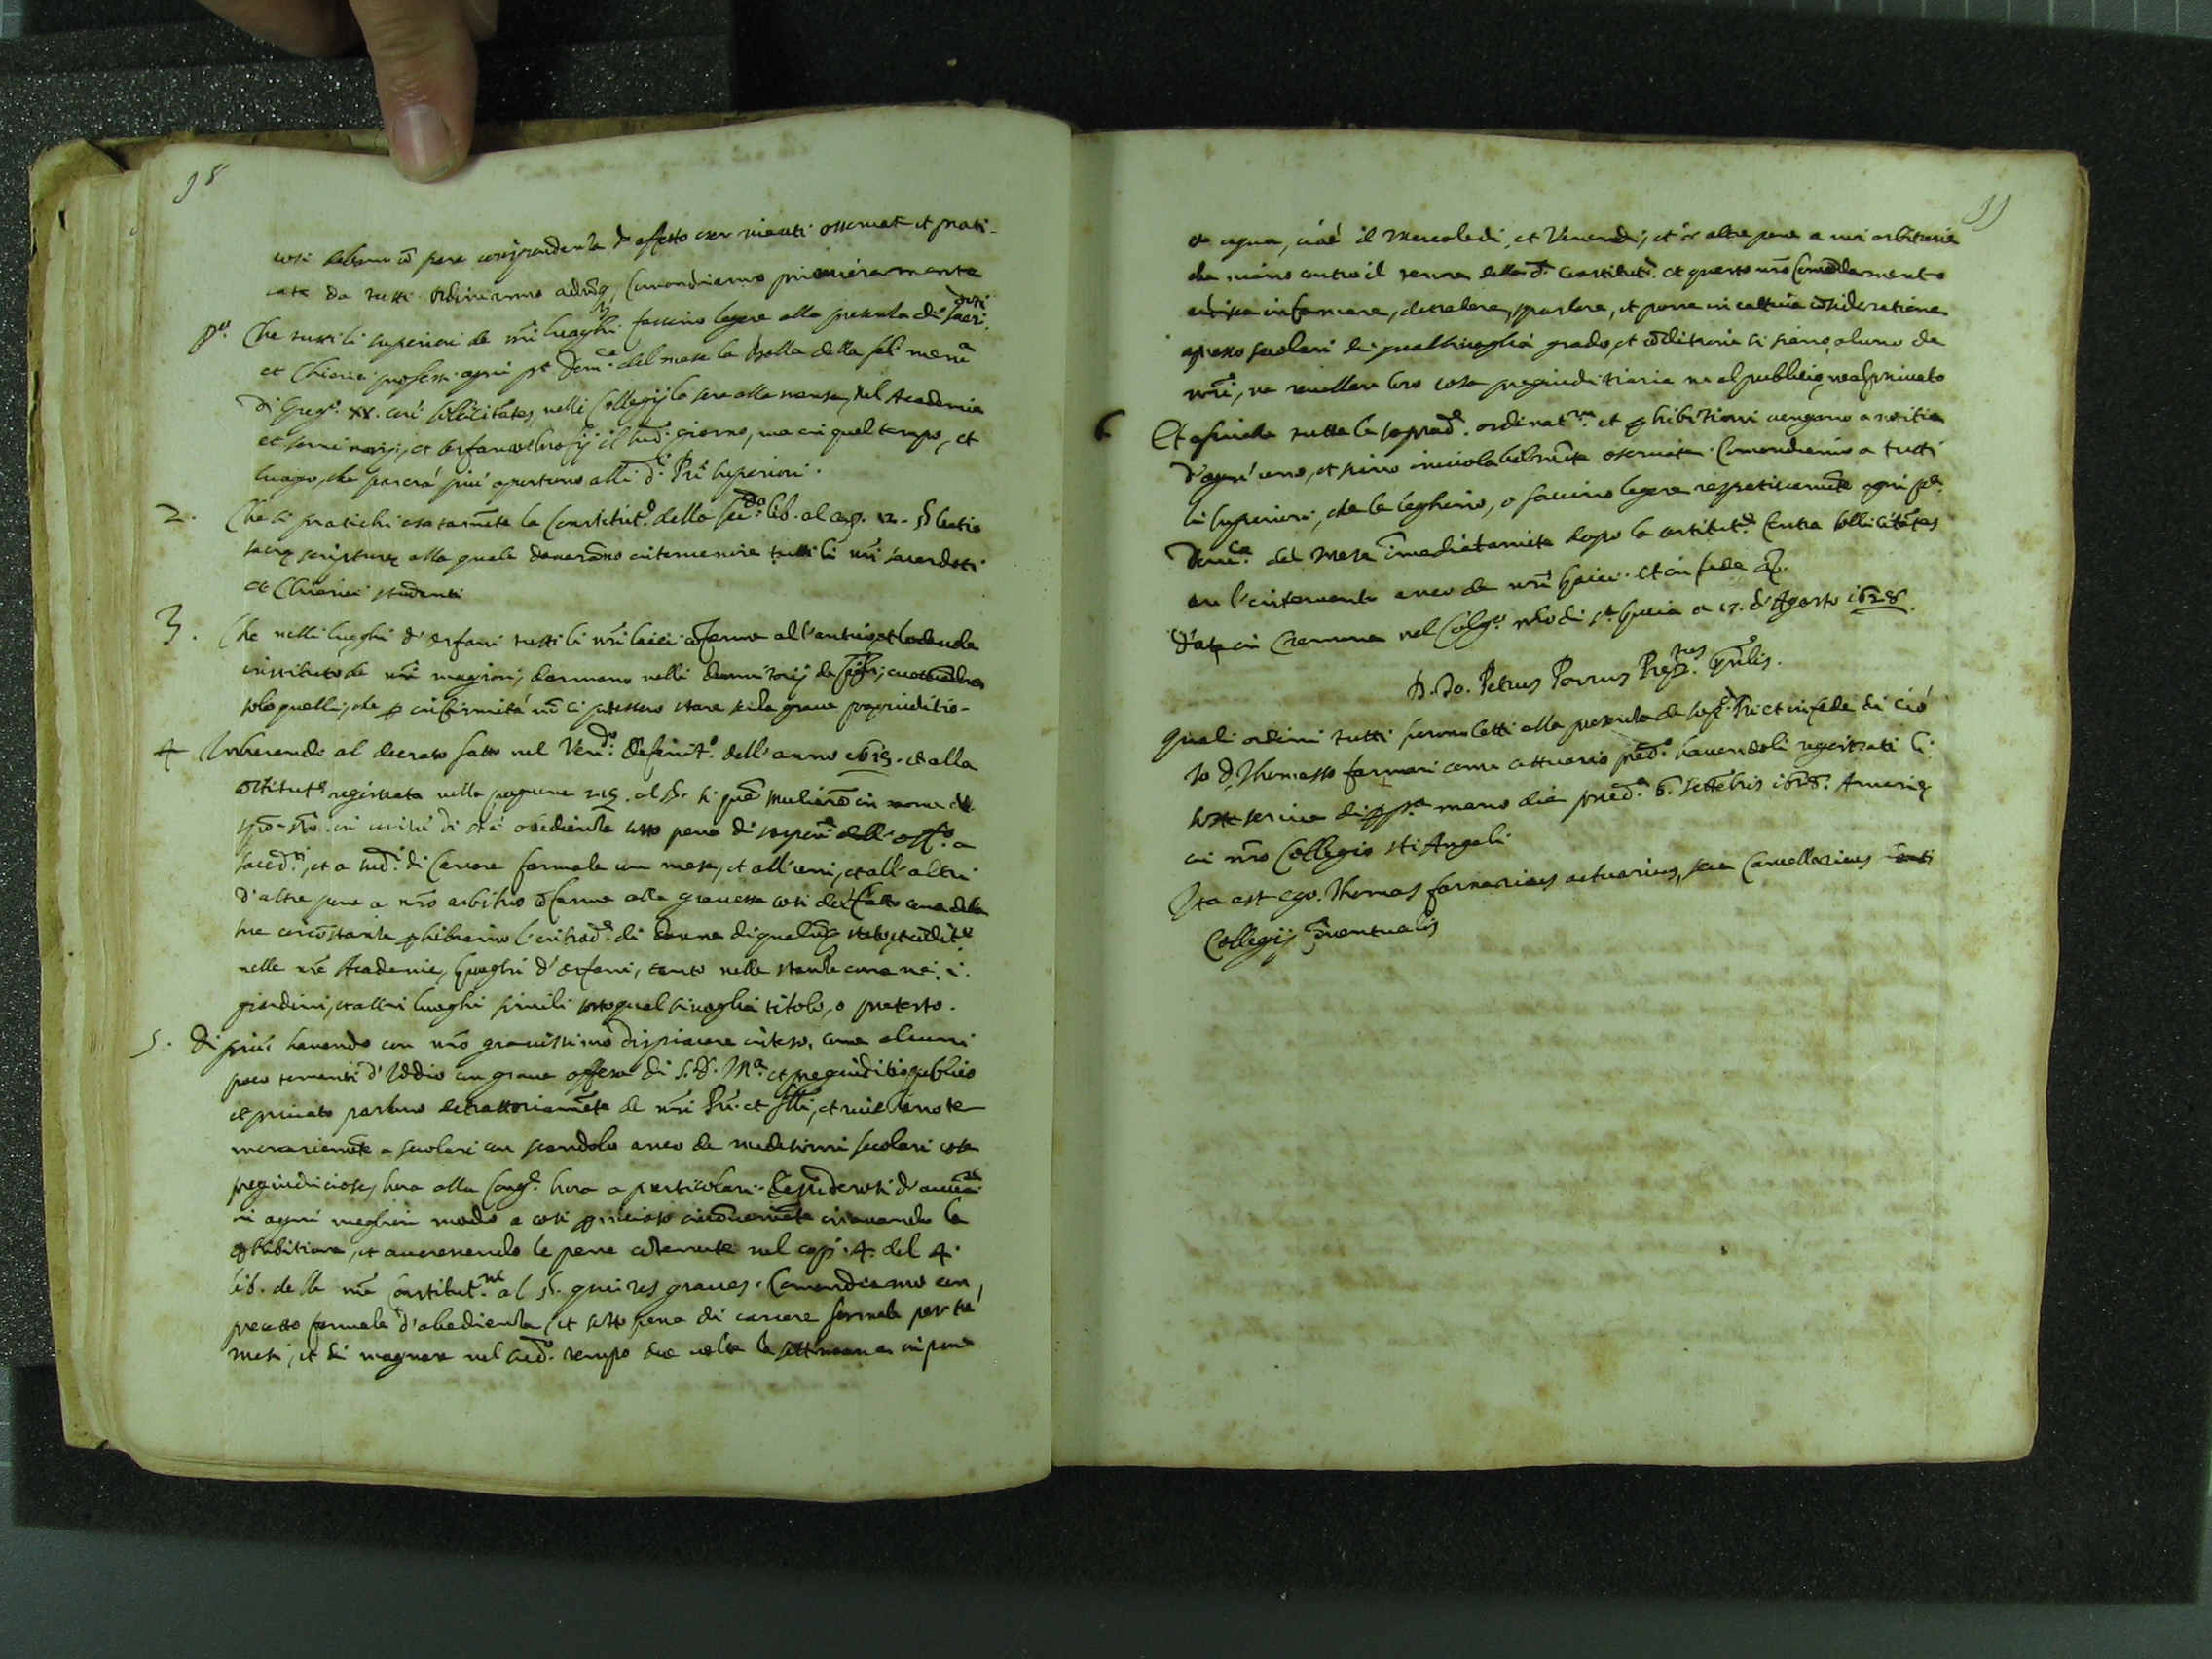 98
così debbono cō pare corrispondenza d'effetto esser osservat et prati-
cate da tutti. Ordiniamo adūq, Comandiamo primieramente
po. Che tutti li superiori de nr̄i luoghi faccino legere alla presenza di sacerdoti
et Chierici professi ogni pa Domca del mese la Bolla della fel. mema
di Grego. XX. Collegij la sera alla mensa, nel Academie
et seminarij, et orfanotrofij il sudo. giorno, ma in quel tempo, et
luogo, che parerà più oportuno alli di. Pri superiori.
2. Che si pratichi esatamēte la Constituto. della lib. al cap. 12. §
sacrę scripturę alla quale doverāno intervenire tutti li nr̄i sacerdoti
et Chierici studenti
3. Che nelli luoghi d'orfani tutti li nr̄i laici cōforme all'antico, et lodevole
instituto de nr̄i magiori, dormano nelli dormitorij de figli,
solo quelli, che ꝑ infirmità nō ci potessero stare senza grave pregiuditio.
4 Inherendo al decreto fatto nel Vendo. Definito. dell'anno 1619. et alla
cōstituto registrata nella pagina 219. al §. si quis mulierē in
in virtù di sta obedienza sotto pena di
et a di Carcere formale un mese, et all'uni, et all'altri
d'altre pene a nr̄o arbitrio cōforme alla gravezza così del fatto come delle
sue circōstanze ꝓhibiamo l'introdo. di donne di qualūq stato, et cōdite
nelle nr̄e Academie, luoghi d'orfani, tanto nelle stanze come nei
giardini, et altri luoghi simili sotto qual si voglia titolo, o pretesto.
5. Di più havendo con nr̄o gravissimo dispiacere inteso, come alcuni
poco timenti d'Iddio con grave offesa di S. D. Ma. et pregiuditio publico
et privato parlano detrattoriamēte de nr̄i Pri. et flli, et rivelano te
merariamēte a secolari con scandolo anco de medesimi secolari cose
pregiudiciose, hora alla Congne. hora a particolari. Desiderosi d'
in ogni meglior modo a così ꝑnicioso incōveniēte inovando la
ꝓhibitione, et accrescendo le pene cōtenute nel cap. 4. del 4.
lib. delle nr̄e Constitutni. al §. qui res graves. Comandiamo con
precetto formale d'obedienza, et sotto pena di carcere formale per tre
mesi, et di magnare nel sudo. tempo due volte la settimana in pane
99
et aqua, cioè il Mercoledi, et Venerdi, et altre pene a noi arbitrarie
che niuno contro il tenore della da. Constituto. et questo nr̄o Comādamento
ardisca infamare, detrahere, sparlare, et porre in cattiva cōsideratione
apresso secolari di qualsivoglia grado, et cōditione si siano, alcuno de
nr̄i, ne revellare loro cosa pregiuditiaria ne al publico, ne al privato
6 Et afinche tutte le soprade. ordinatni. et ꝓhibitioni vengano a notitia
d'ogni uno, et siano inviolabilmēte osservate. Comandiamo a tutti
li superiori, che le leghino, o faccino legere respetivamēte ogni pa.
Domca. del Mese imediatamēte dopo la cōstituto. Contra sollicitātes
con l'intervento anco de nr̄i laici. Et in fede &.
Data in Cremona nel Collgo. nr̄o di sta Lucia a 17. d'Agosto 1628.
D. Io. Petrus Porrus Preptus. Gn̄lis.
Quali ordini tutti furono letti alla presenza de sopi. Pri et in fede di ciò
Io D. Thomasso fornari come attuario predo. havendoli registrati li
sottoscrivo di ppa. mano die preda. 6. settēbris 1628. Amerię
in nr̄o Collegio sti Angeli
Ita est ego. Thomas fornarius actuarius, seu Cancellarius
Collegij Conventualis